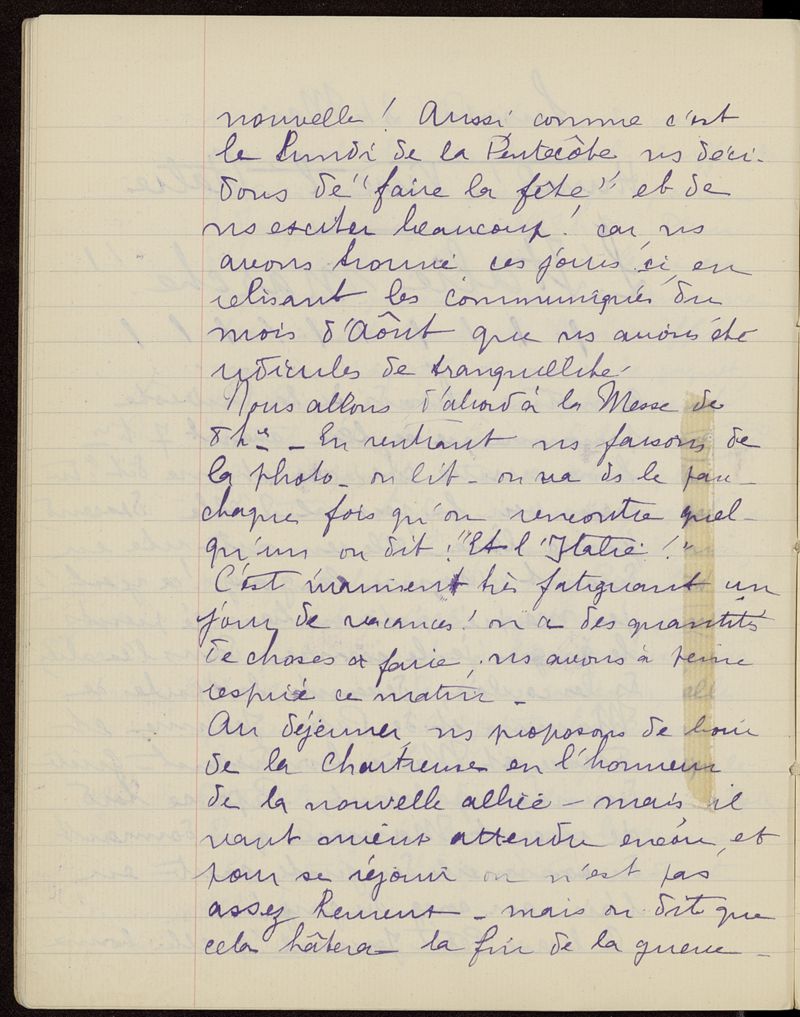 nouvelle ! Aussi comme c'est
le Lundi de la Pentecôte ns déci-
dons de "faire la fête" et de
ns exciter beaucoup ! car ns
avons trouvé ces jours ci, en
relisant les communiqués du
mois d'Août que ns avions été
ridicules de tranquillité -
Nous allons d'abord à la Messe de
8 hres - En rentrant ns faisons de
la photo - on lit - on va ds le parc -
chaque fois qu'on rencontre quel-
qu'un on dit : "Et l'Italie !"
C'est vraiment très fatiguant un
jour de vacances ! on a des quantités
de choses à faire, ns avons à peine
respiré ce matin -
Au déjeuner, ns proposons de boire
de la Chartreuse en l'honneur
de la nouvelle alliée - mais il
vaut mieux attendre encore, et
pour se réjouir on n'est pas
assez heureux - mais on dit que
cela hâtera la fin de la guerre -